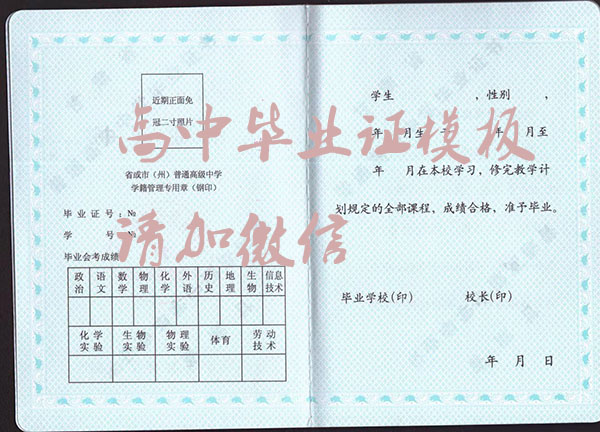 近期正面免
冠二寸照片
省成市（州）普通高级中学
学籍管理专用章（钢印）
毕业证号：№
学 号：№
毕业会考成绩
政治 语文 数学 物理 化学 外语 历史 地理 生物 信息技术
化学实验 生物实验 物理实验 体育 劳动技术
学生 ，性别 ，
年 月生 于 年 月至
年 月在本校学习，修完教学计
划规定的全部课程，成绩合格，准予毕业。
毕业学校(印) 校长(印)
年 月 日
高中毕业证模板
请加微信